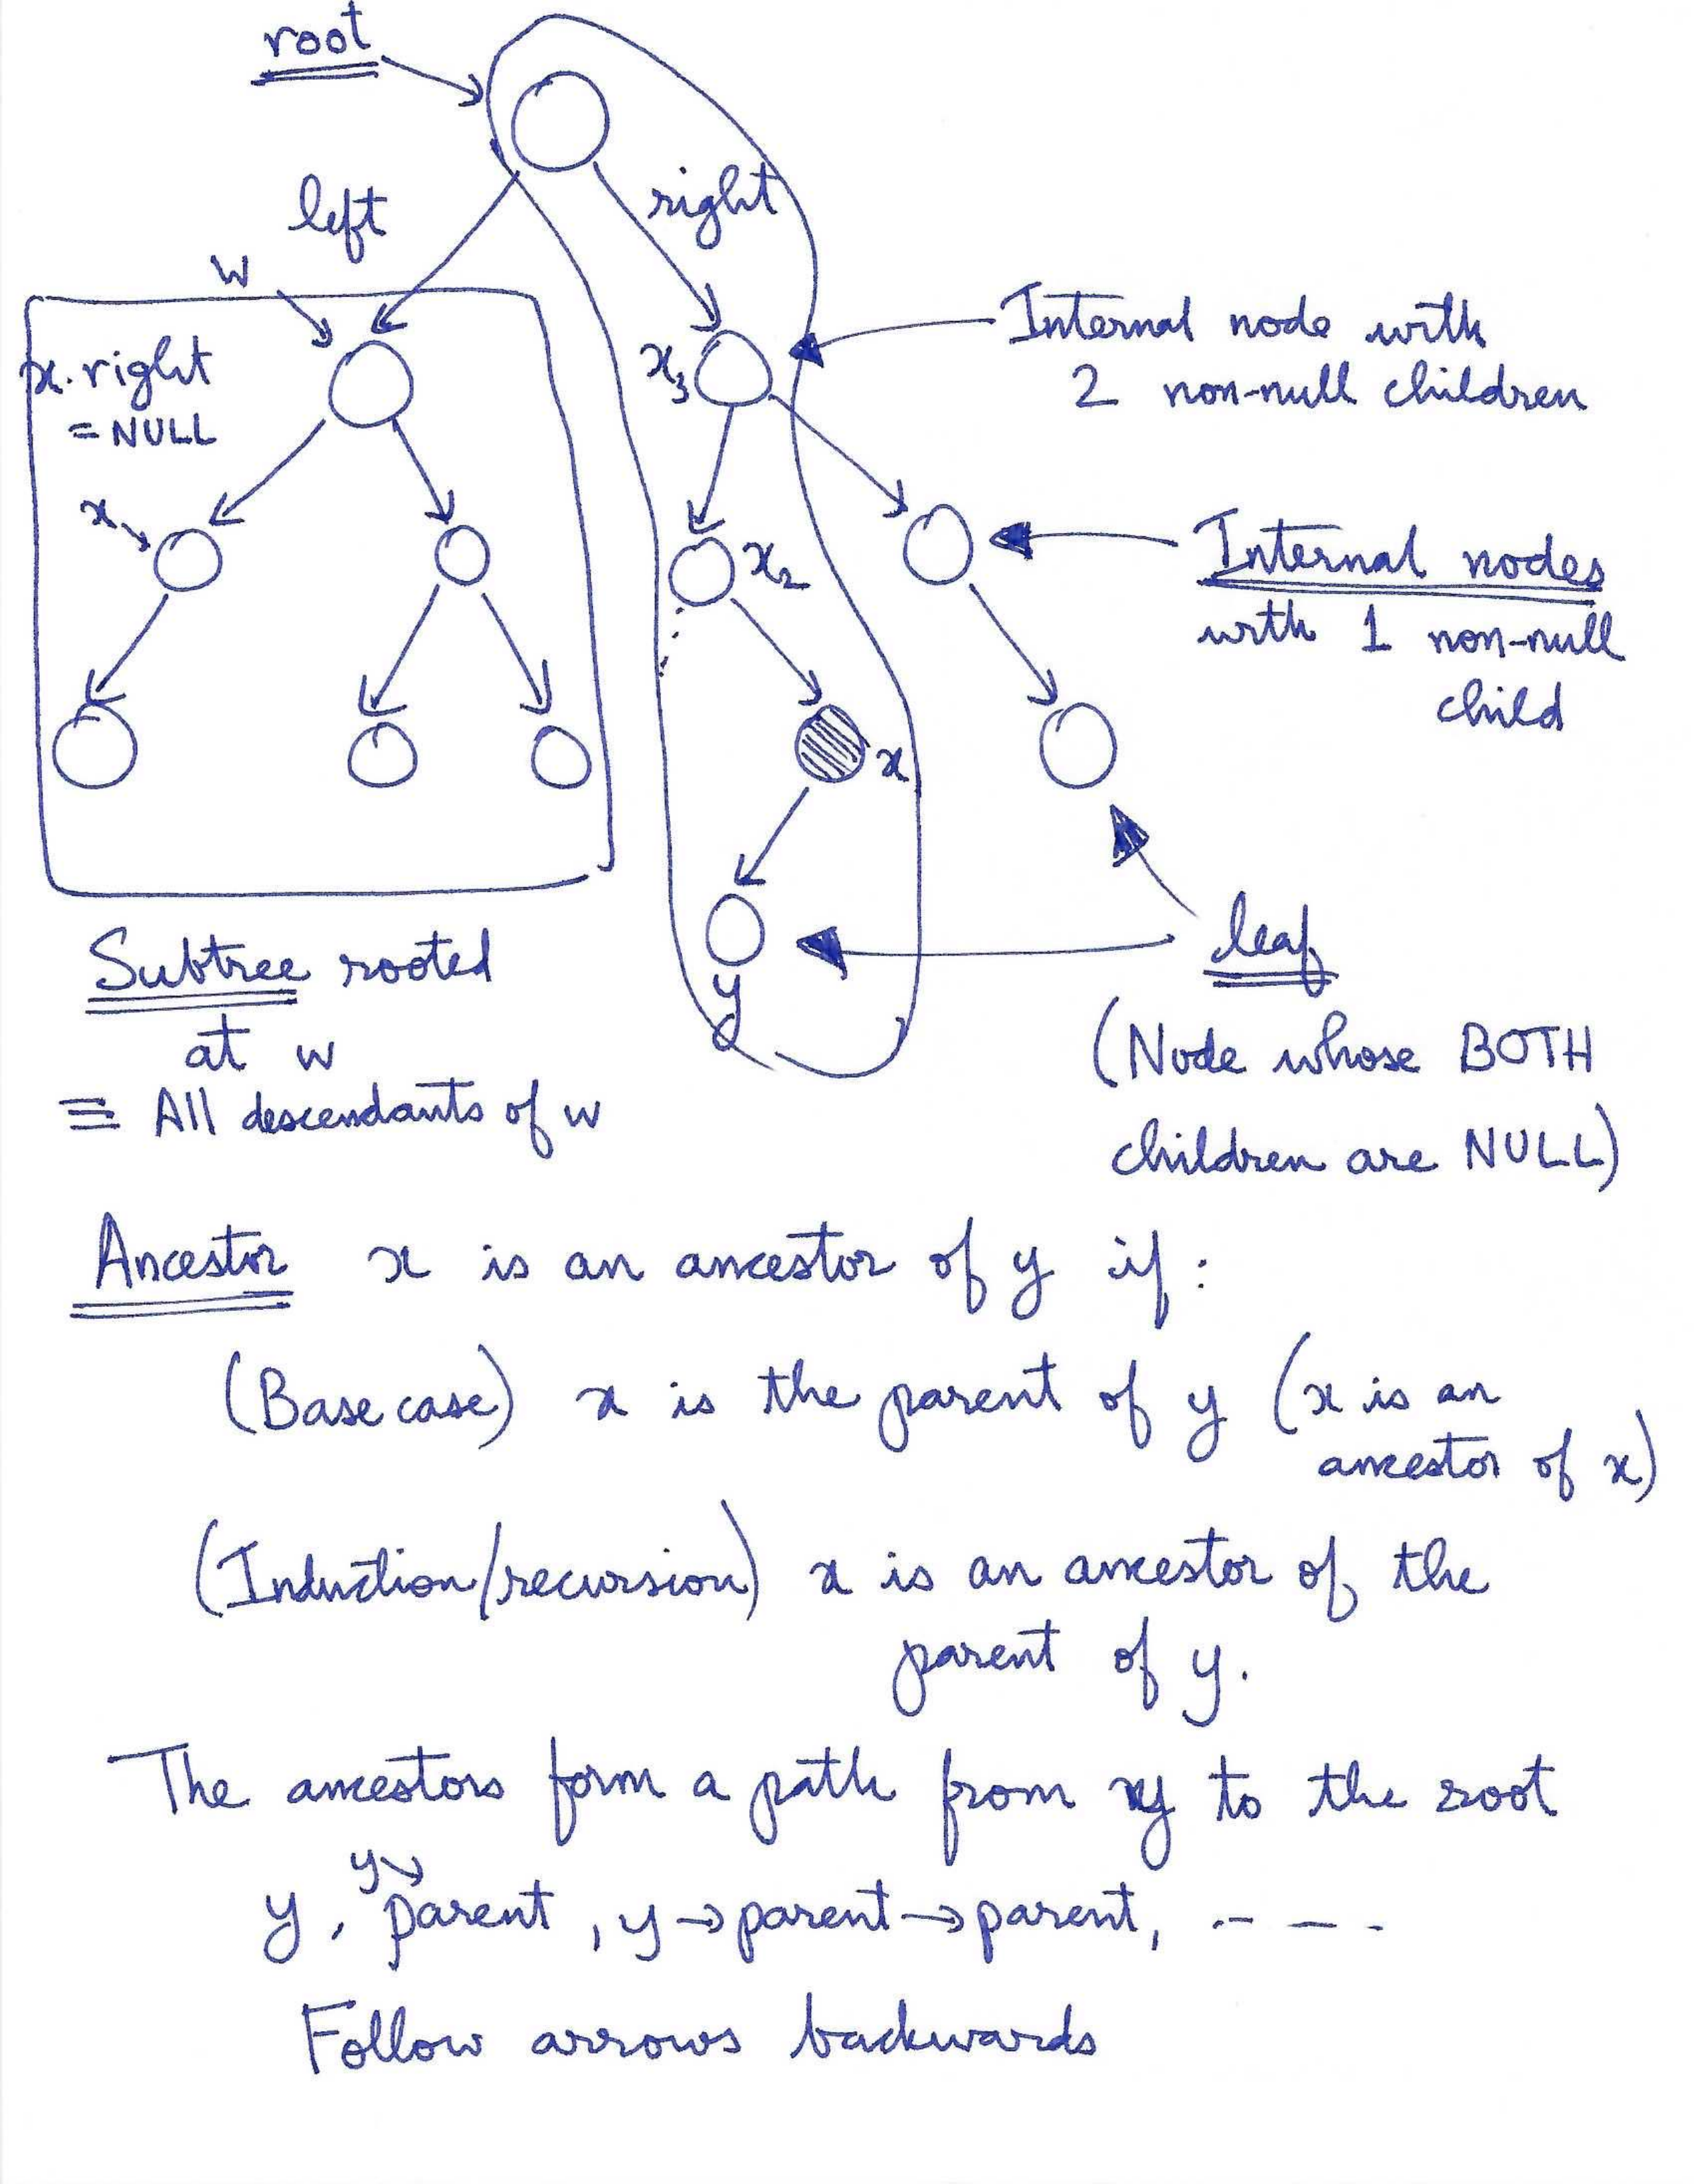 root
left
right
w
x.right
= NULL
x₃
Internal node with
2 non-null children
x
x₂
Internal nodes
with 1 non-null
child
x
y
leaf
(Node whose BOTH
children are NULL)
Subtree rooted
at w
≡ All descendants of w
Ancestor x is an ancestor of y if :
(Base case) x is the parent of y (x is an
ancestor of x)
(Induction/recursion) x is an ancestor of the
parent of y.
The ancestors form a path from y to the root
y, y→parent, y→parent→parent, ----
Follow arrows backwards